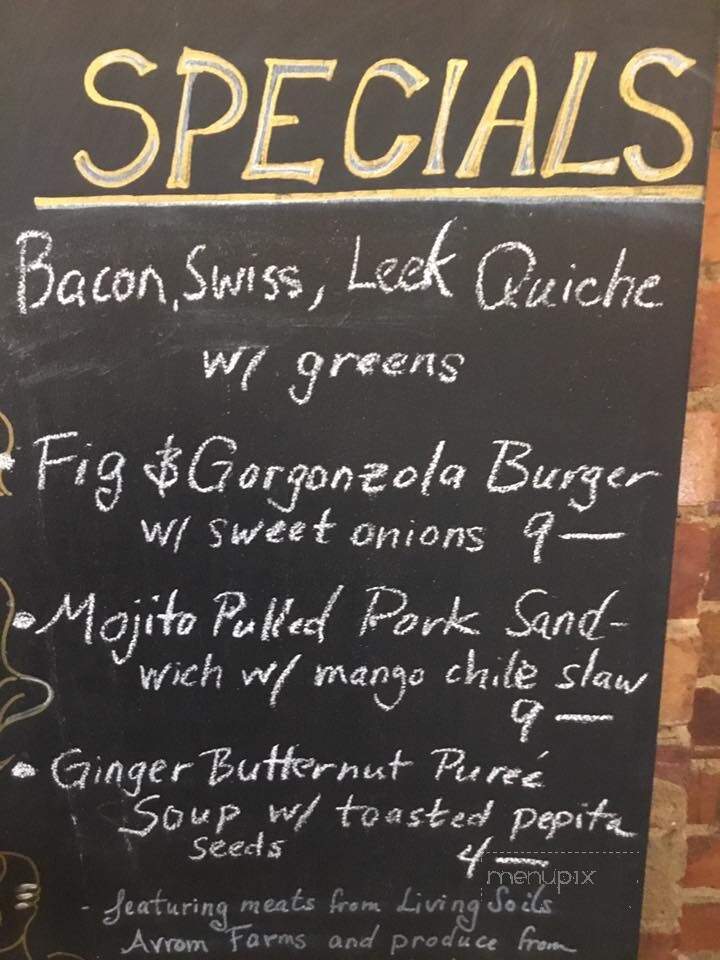 SPECIALS
Bacon, Swiss, Leek Quiche
w/ greens
• Fig & Gorgonzola Burger
w/ sweet onions 9—
• Mojito Pulled Pork Sand-
wich w/ mango chile slaw
9—
• Ginger Butternut Pureé
Soup w/ toasted pepita
seeds 4—
menupix
- featuring meats from Living Soils
Avrom Farms and produce from